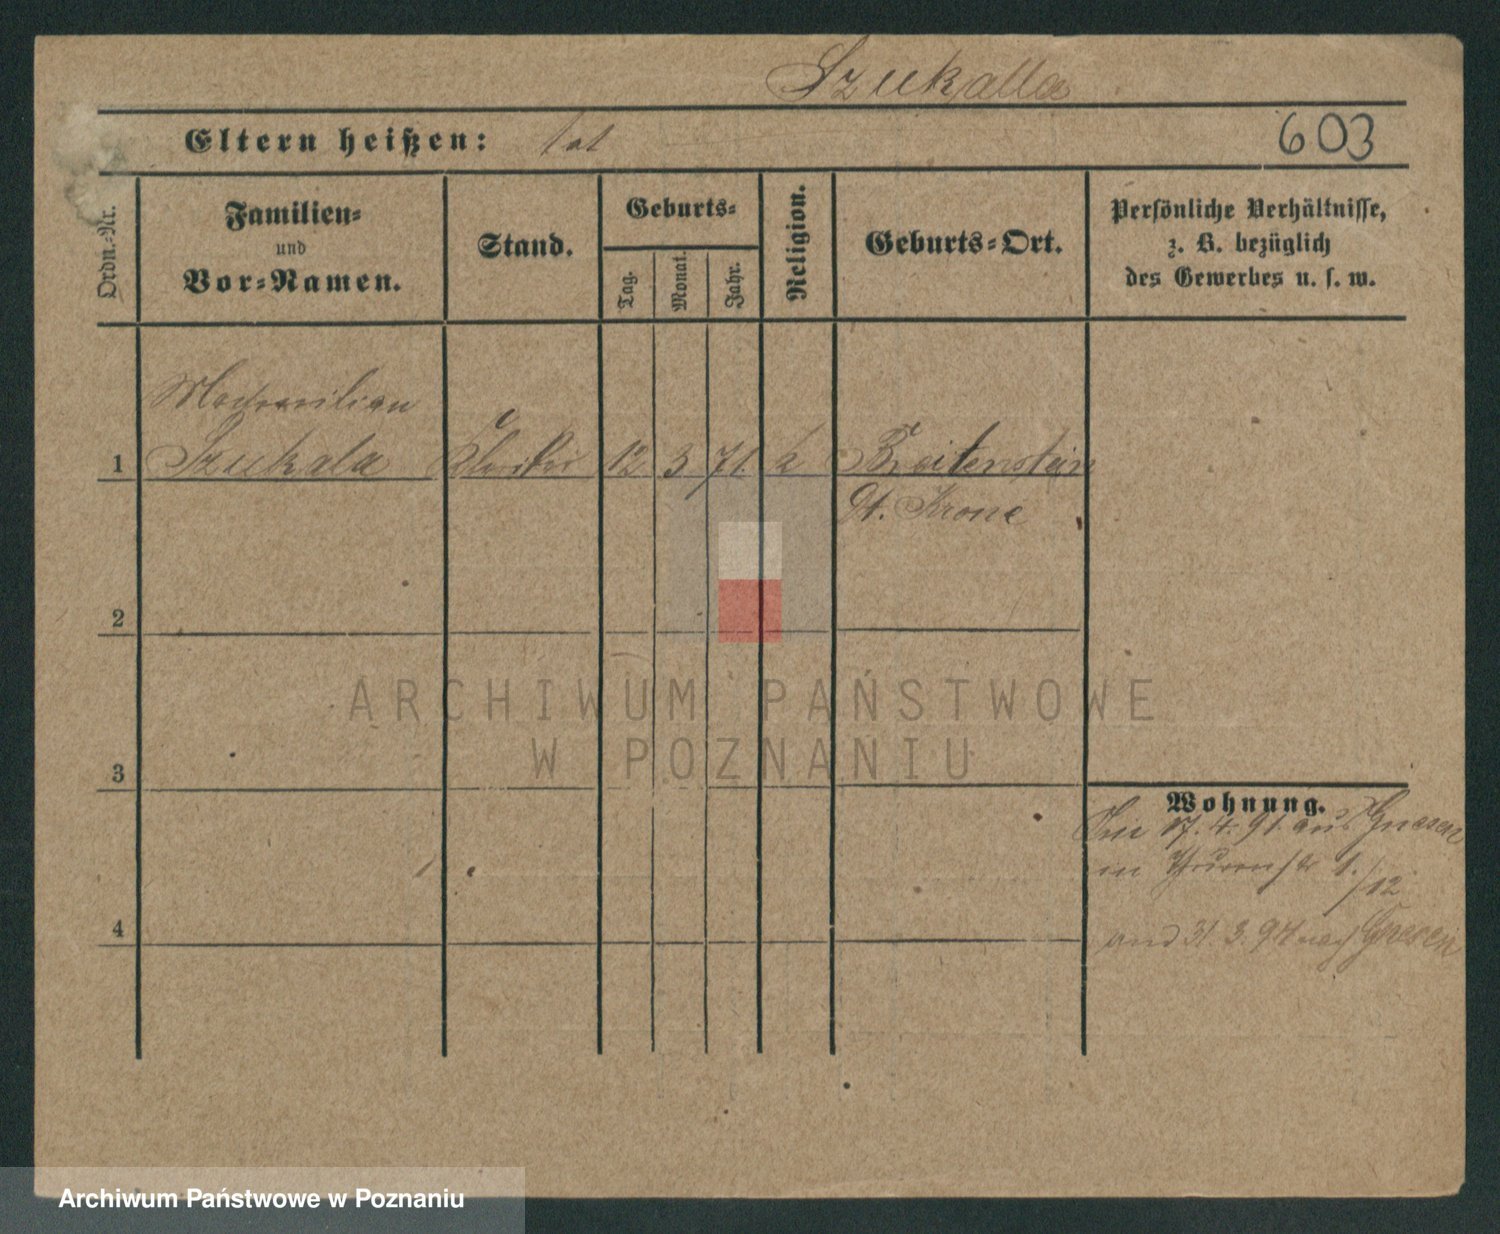 Szukalla
Eltern heißen: tot
603
Ordn.-Nr.
Familien-
und
Vor-Namen.
Stand.
Geburts-
Tag.
Monat.
Jahr.
Religion.
Geburts-Ort.
Persönliche Verhältnisse,
z. B. bezüglich
des Gewerbes u. s. w.
Maximilian
1 Szukala Kleriker 12 3 71. k Breitenstein
Dt. Krone
2
3
4
Wohnung.
17. 4. 91. aus Gnesen
in 1./12
31. 3. 94 nach Gnesen
ARCHIWUM PAŃSTWOWE
W POZNANIU
Archiwum Państwowe w Poznaniu